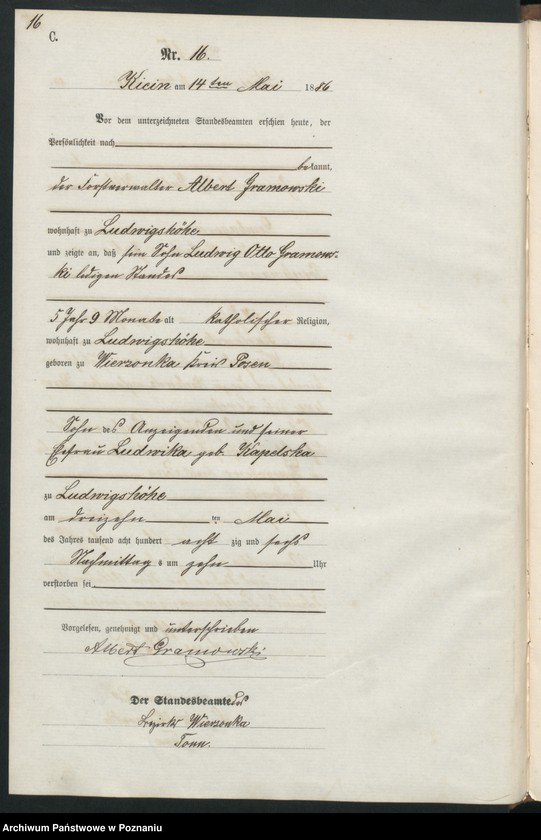 16
C.
Nr. 16.
Kicin am 14ten Mai 1886
Vor dem unterzeichneten Standesbeamten erschien heute, der
Persönlichkeit nach
bekannt,
der Forstverwalter Albert Gramowski
wohnhaft zu Ludwigshöhe
und zeigte an, daß sein Sohn Ludwig Otto Gramows-
ki ledigen Standes
5 Jahr 9 Monate alt katholischer Religion,
wohnhaft zu Ludwigshöhe
geboren zu Wierzonka Kreis Posen
Sohn des Anzeigenden und seiner
Ehefrau Ludwika geb. Kapelska
zu Ludwigshöhe
am dreizehn ten Mai
des Jahres tausend acht hundert acht zig und sechs
Nachmittag s um zehn Uhr
verstorben sei
Vorgelesen, genehmigt und unterschrieben
Albert Gramowski
Der Standesbeamte des
Bezirks Wierzonka
Tonn.
Archiwum Państwowe w Poznaniu